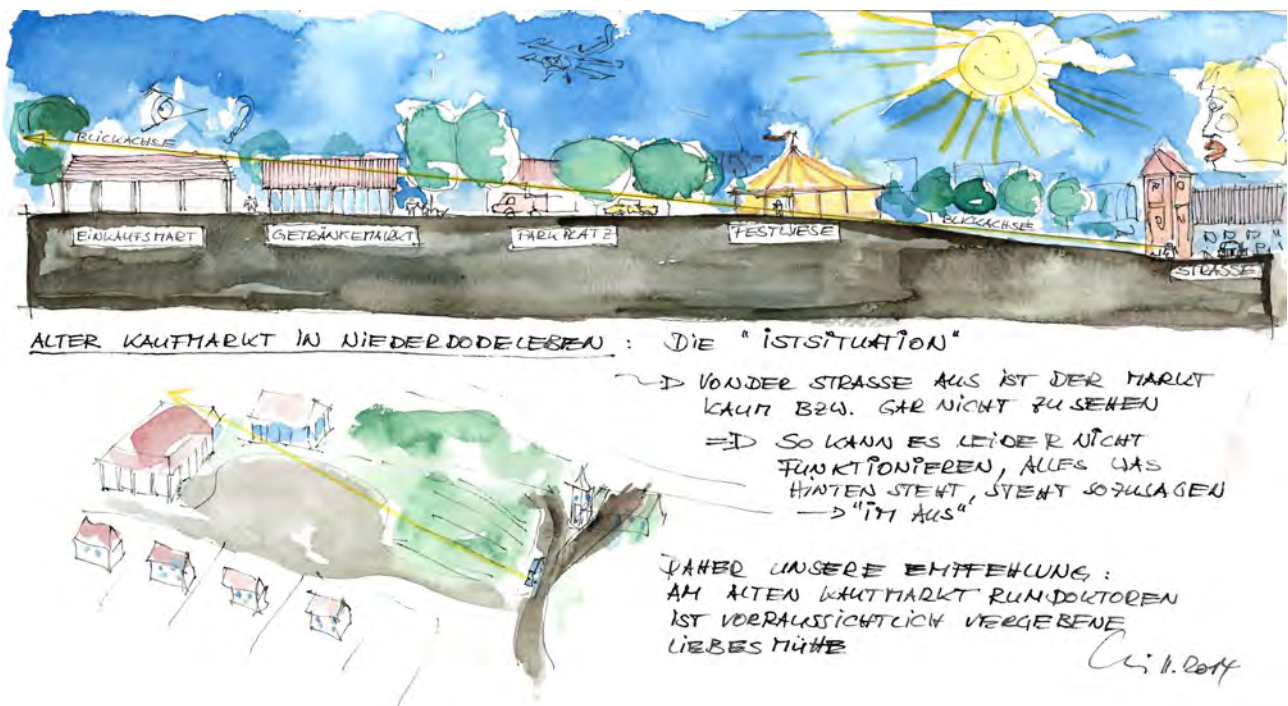 BLICKACHSE
EINKAUFSMART
GETRÄNKEMARKT
PARKPLATZ
FESTWIESE
BLICKACHSE
STRASSE
ALTER KAUFMARKT IN NIEDERDODELEBEN : DIE "ISTSITUATION"
VON DER STRASSE AUS IST DER MARKT
KAUM BZW. GAR NICHT ZU SEHEN
SO KANN ES LEIDER NICHT
FUNKTIONIEREN, ALLES WAS
HINTEN STEHT, STEHT SOZUSAGEN
"IM AUS"
DAHER UNSERE EMPFEHLUNG:
AM ALTEN KAUFMARKT RUMDOKTOREN
IST VORRAUSSICHTLICH VERGEBENE
LIEBES MÜHE
11.2014